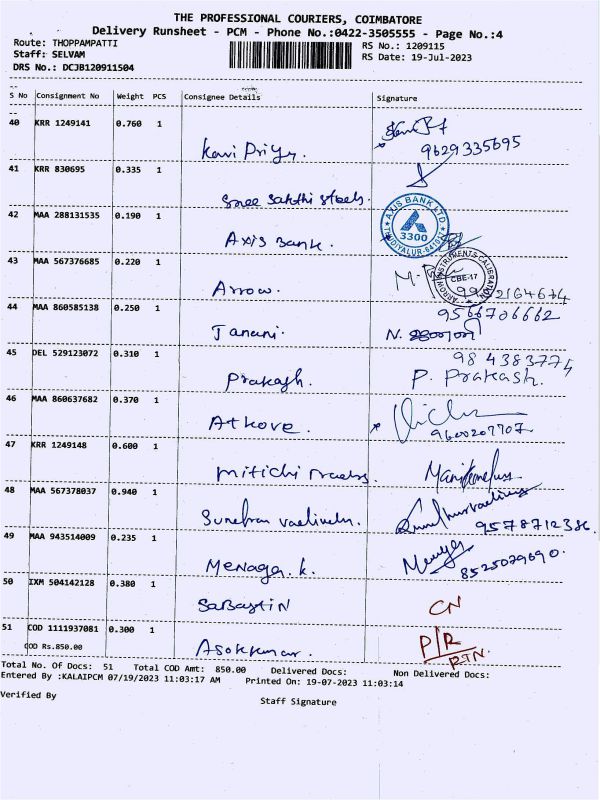 THE PROFESSIONAL COURIERS, COIMBATORE
Delivery Runsheet - PCM - Phone No.:0422-3505555 - Page No.:4
Route: THOPPAMPATTI RS No.: 1209115
Staff: SELVAM RS Date: 19-Jul-2023
DRS No.: DCJB120911504
S No Consignment No Weight PCS Consignee Details Signature
40 KRR 1249141 0.760 1
Kavi Priya. 9629335695
41 KRR 830695 0.335 1
Sree Sakthi Steels.
42 MAA 288131535 0.190 1 AXIS BANK LTD. 3300
Axis Bank.
43 MAA 567376685 0.220 1 ARROW INSTRUMENTS CALIBRATION CBE-17
Arrow.
44 MAA 860585138 0.250 1 9566706662
Janani. N.
45 DEL 529123072 0.310 1 984383774
Prakash. P. Prakash.
46 MAA 860637682 0.370 1
Atkove. 9600207707.
47 KRR 1249148 0.600 1
48 MAA 567378037 0.940 1
9578712386.
49 MAA 943514009 0.235 1
Menaga. k. 8525029690.
50 IXM 504142128 0.380 1
SaBastiN CN
51 COD 1111937081 0.300 1 P/R
COD Rs.850.00 Asokkumar. RTN.
Total No. Of Docs: 51 Total COD Amt: 850.00 Delivered Docs: Non Delivered Docs:
Entered By :KALAIPCM 07/19/2023 11:03:17 AM Printed On: 19-07-2023 11:03:14
Verified By Staff Signature